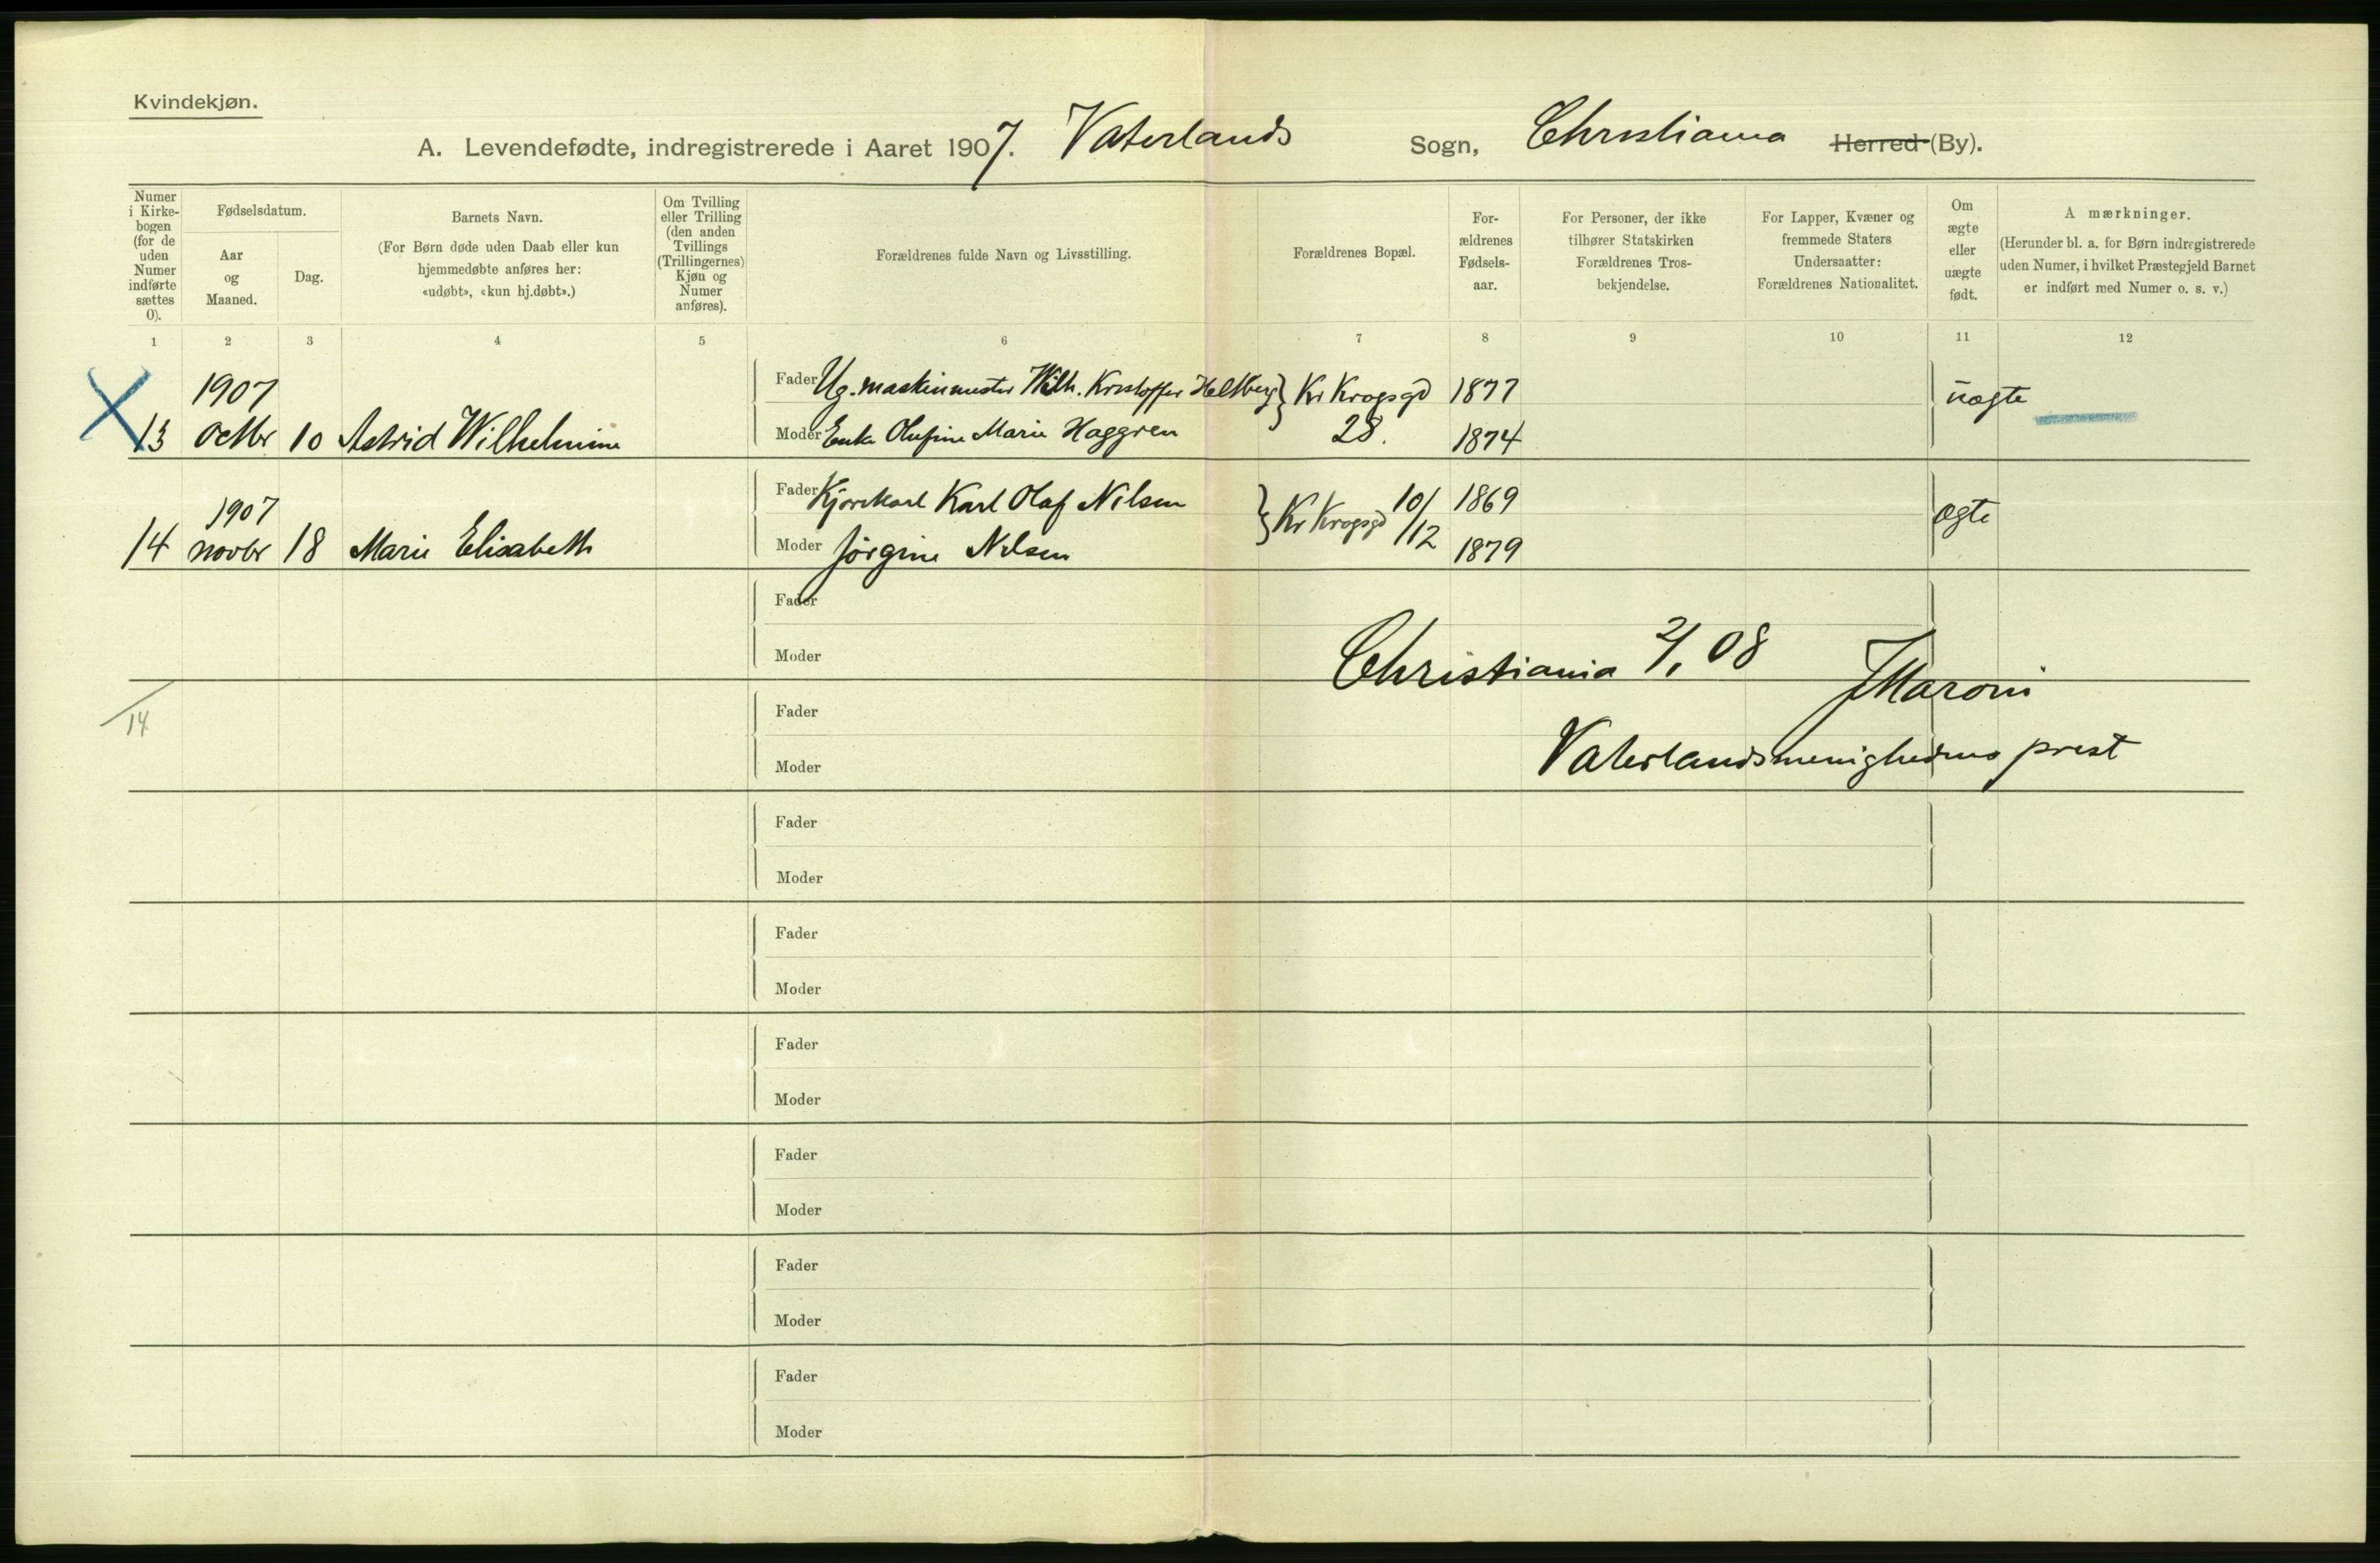 Kvindekjøn.
A. Levendefødte, indregistrerede i Aaret 1907. Vaterlands Sogn, Christiania Herred (By).
Numer i Kirkebogen (for de uden Numer indførte sættes 0).
Fødselsdatum.
Aar og Maaned.
Dag.
Barnets Navn.
(For Børn døde uden Daab eller kun hjemmedøbte anføres her: «udøbt», «kun hj.døbt».)
Om Tvilling eller Trilling (den anden Tvillings (Trillingernes) Kjøn og Numer anføres).
Forældrenes fulde Navn og Livsstilling.
Forældrenes Bopæl.
For-ældrenes Fødsels-aar.
For Personer, der ikke tilhører Statskirken Forældrenes Tros-bekjendelse.
For Lapper, Kvæner og fremmede Staters Undersaatter: Forældrenes Nationalitet.
Om ægte eller uægte født.
A mærkninger.
(Herunder bl. a. for Børn indregistrerede uden Numer, i hvilket Præstegjeld Barnet er indført med Numer o. s. v.)
1 2 3 4 5 6 7 8 9 10 11 12
1907 Fader Ug. maskinmester Wilh. Kristoffer Heltberg Kr Krogsgd 1877 uægte
13 Octbr 10 Astrid Wilhelmine Moder Enke Olufine Marie Haggren 28. 1874
1907 Fader Kjørekarl Karl Olaf Nilsen Kr Krogsgd 10/12 1869 ægte
14 novbr 18 Marie Elisabeth Moder Jørgine Nilsen 1879
Fader
Moder
Christiania 2/1 08
JMaroni
14
Fader
Moder
Vaterlandsmenighedens prest
Fader
Moder
Fader
Moder
Fader
Moder
Fader
Moder
Fader
Moder
Fader
Moder